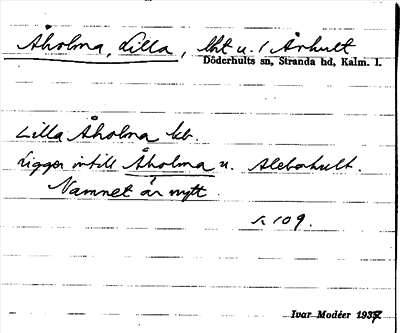 Åholma, Lilla, lht u. / Århult
Döderhults sn, Stranda hd, Kalm. l.
Lilla Åholma lht.
Ligger intill Åholma u. Alebohult.
Namnet är nytt.
s. 109.
Ivar Modéer 1937